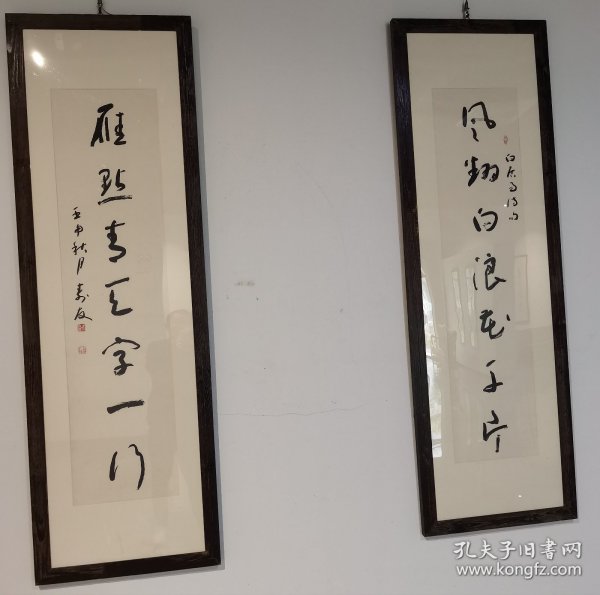 风翻白浪花千片
白居易诗句
雁點青天字一行
壬申秋月 寿友
孔夫子旧書网
www.kongfz.com